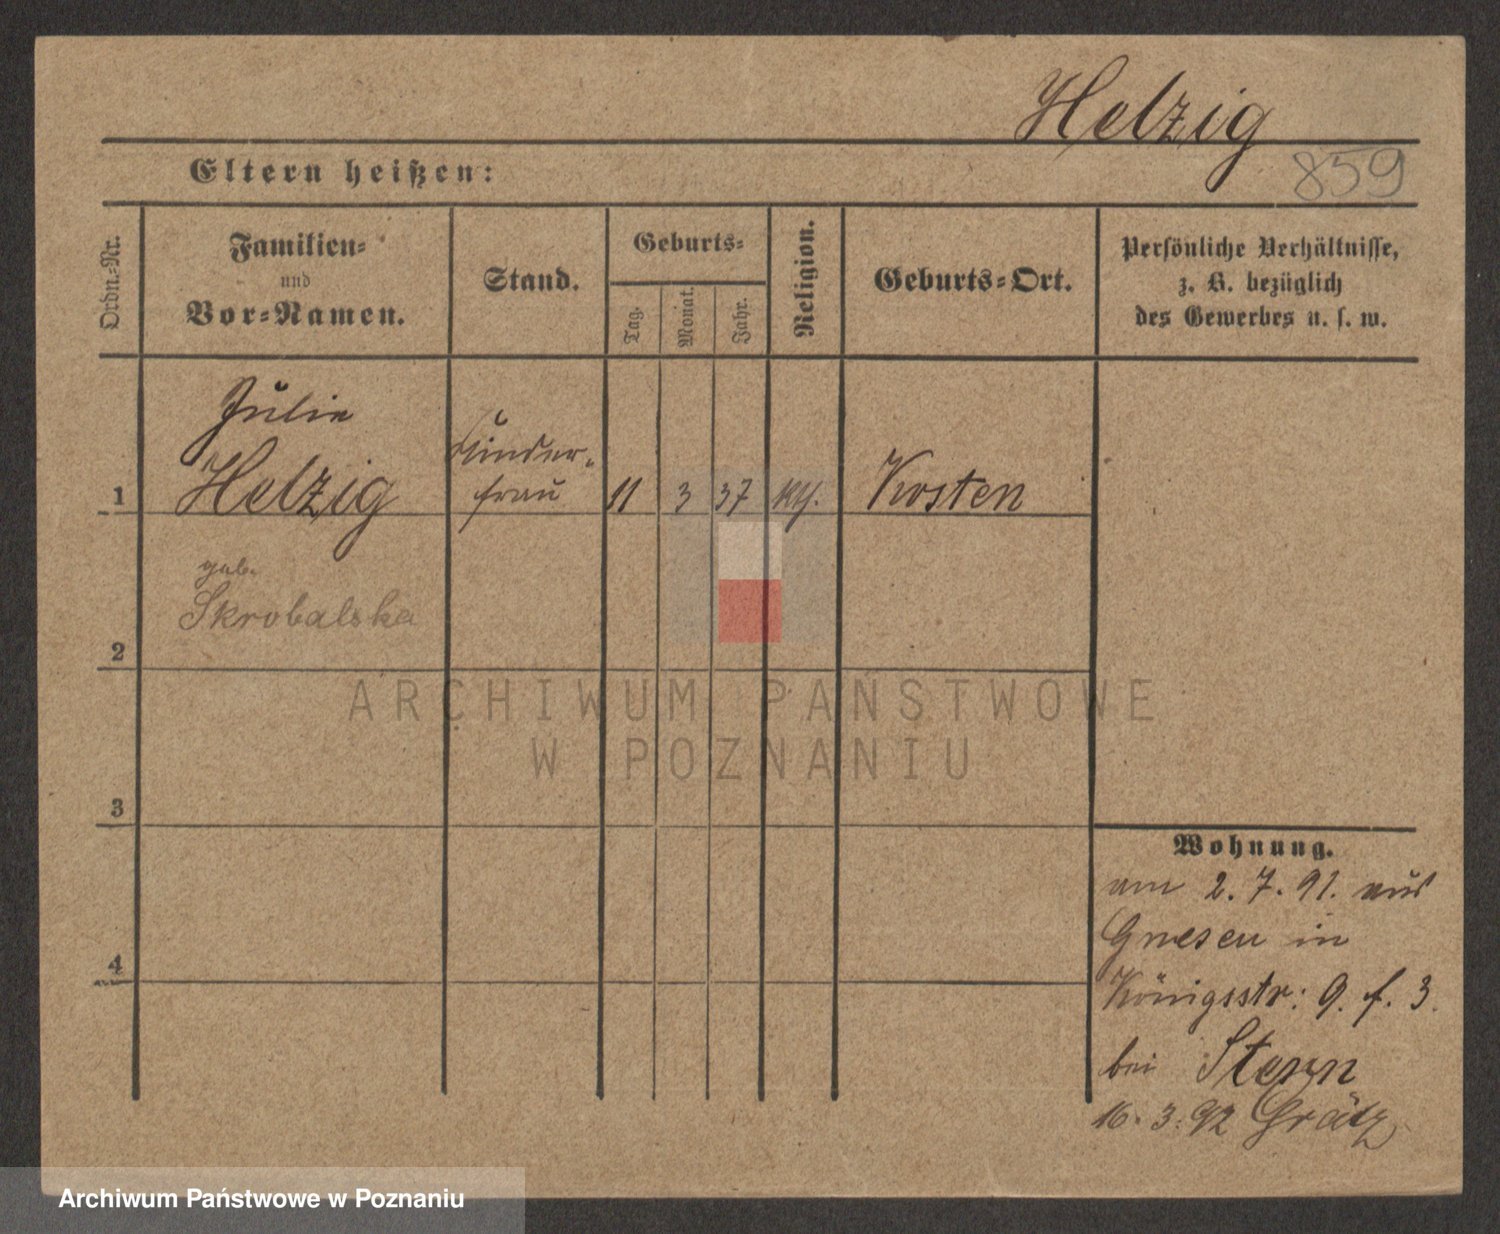 Helzig
859
Eltern heißen:
Ordn.-Nr.
Familien-
und
Vor-Namen.
Stand.
Geburts-
Tag.
Monat.
Jahr.
Religion.
Geburts-Ort.
Persönliche Verhältnisse,
z. B. bezüglich
des Gewerbes u. s. w.
1
Julie
Helzig
Kinder-
frau
11
3
37
kth.
Kosten
geb.
Skrobalska
2
3
4
ARCHIWUM PAŃSTWOWE
W POZNANIU
Wohnung.
am 2. 7. 91. aus
Gnesen in
Königsstr: 9. f. 3.
bei Stern
16. 3. 92 Grätz
Archiwum Państwowe w Poznaniu